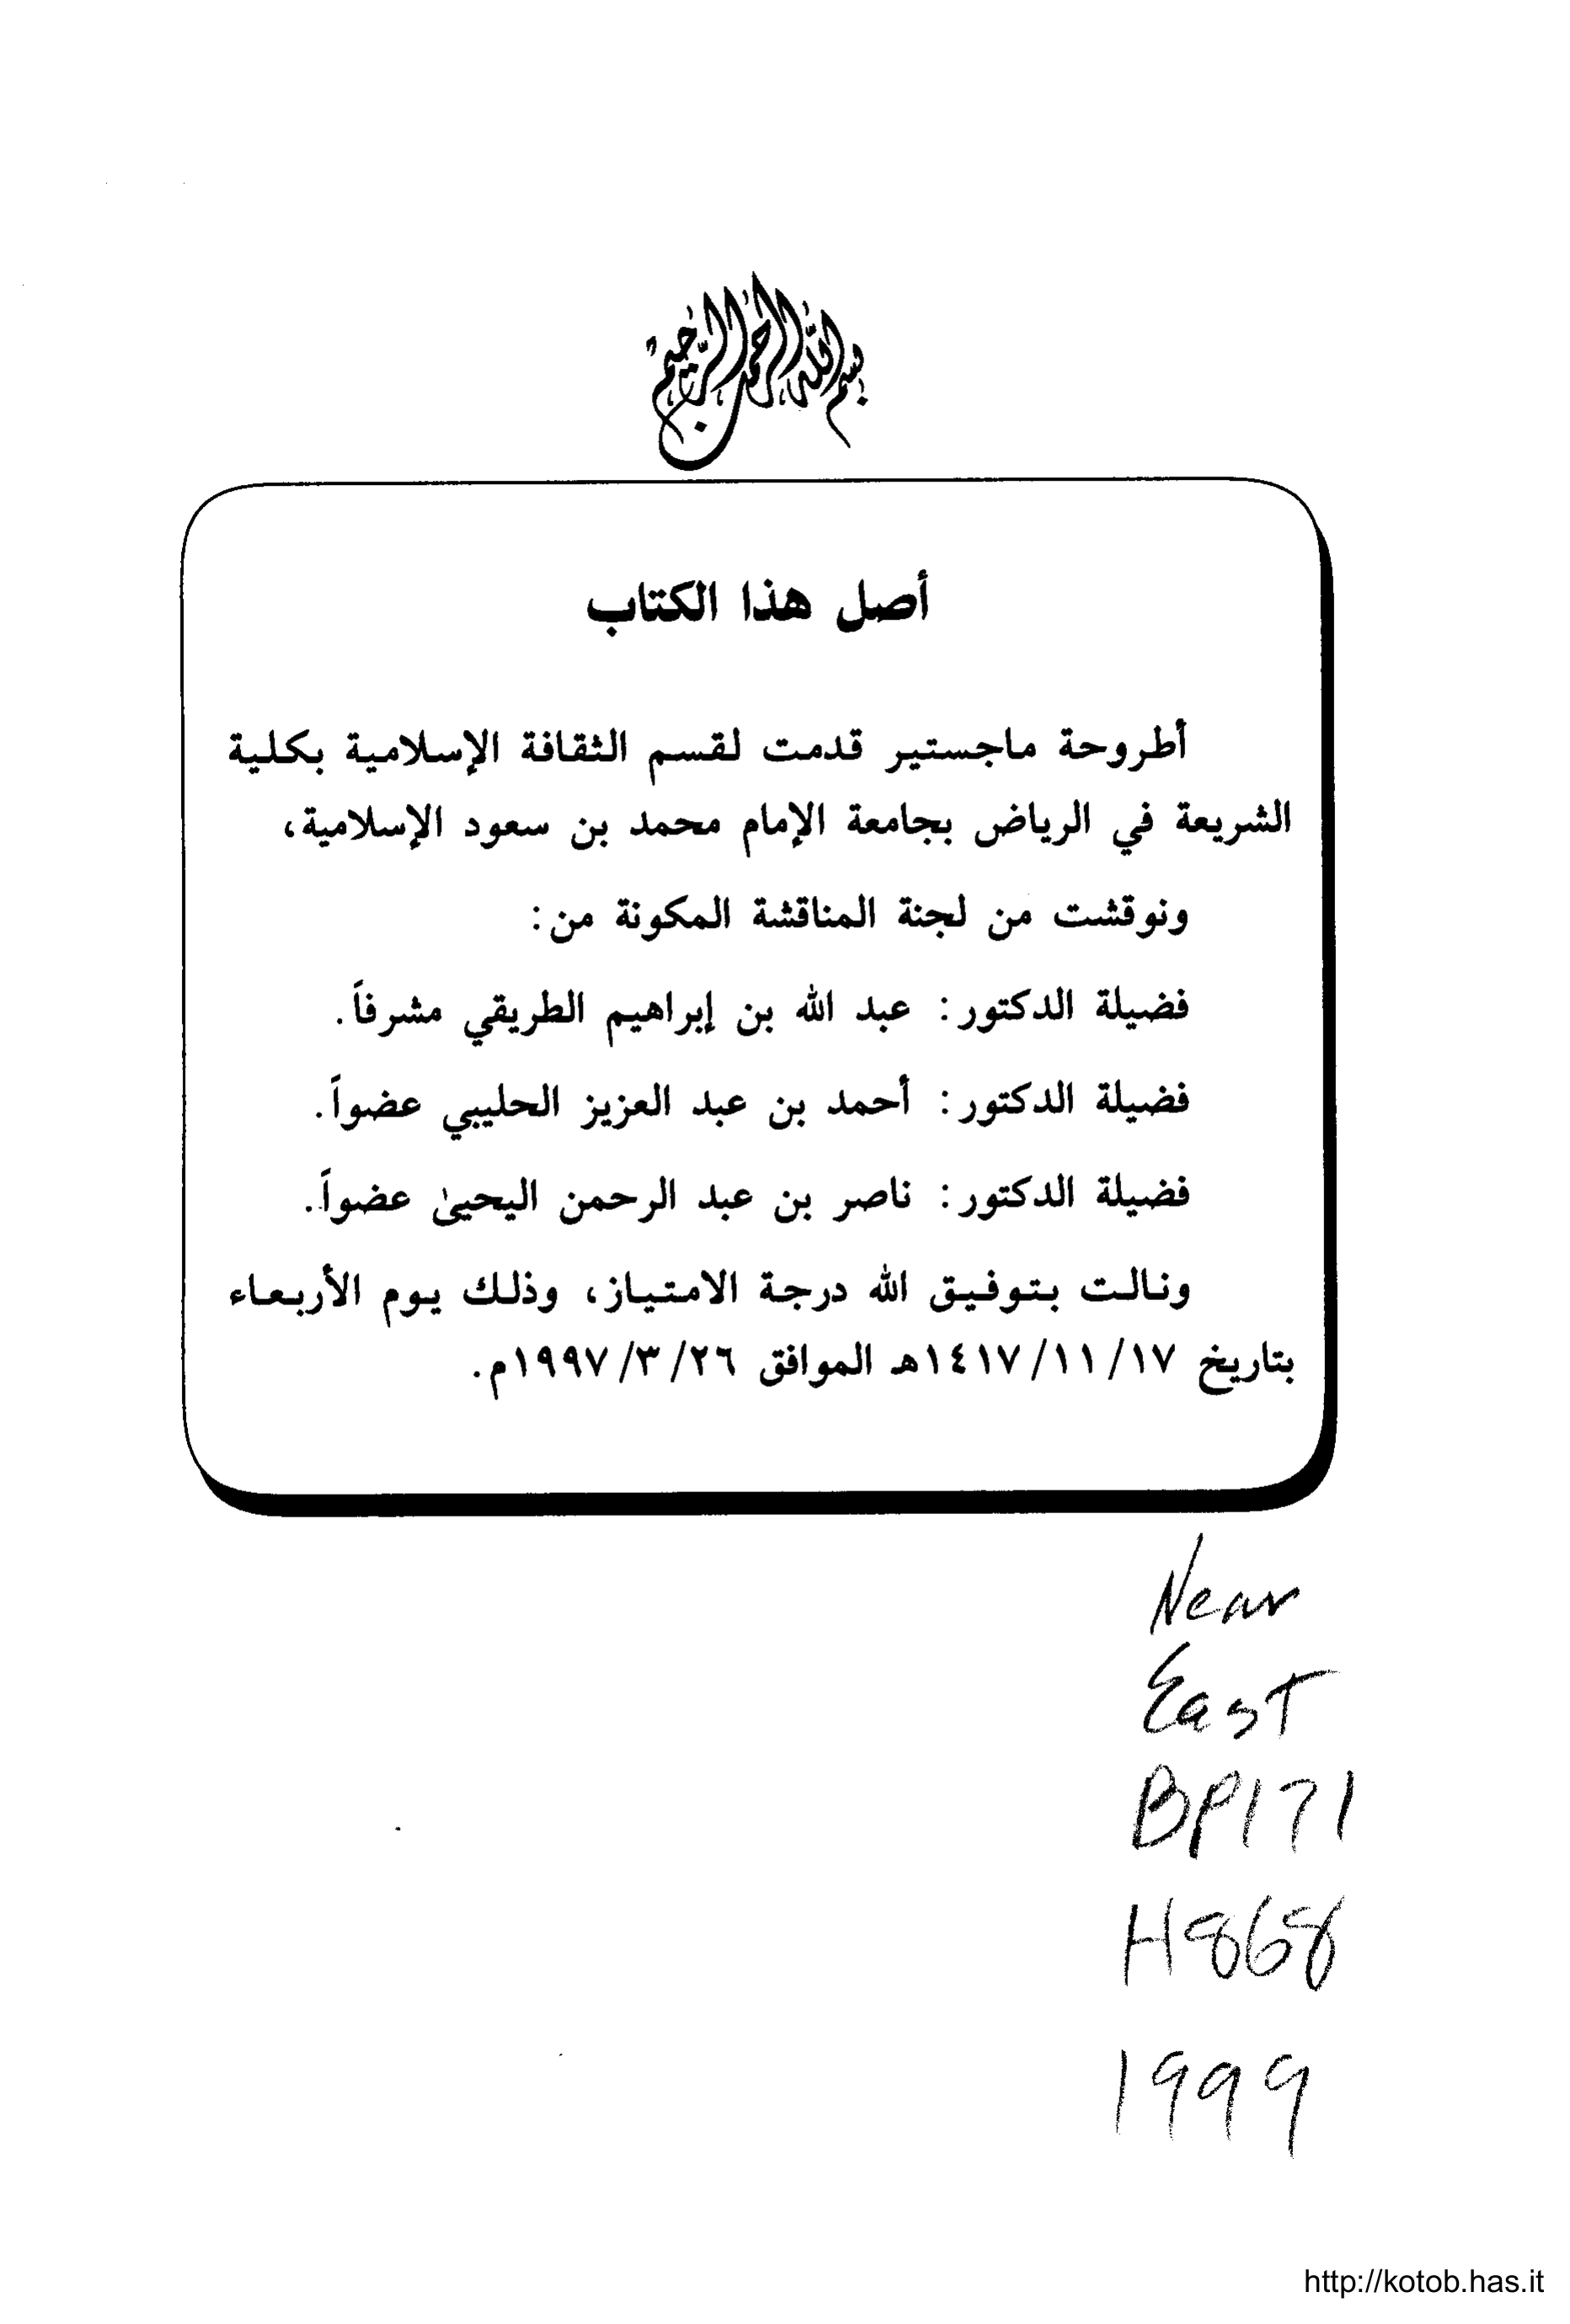 بسم الله الرحمن الرحيم
أصل هذا الكتاب
أطروحة ماجستير قدمت لقسم الثقافة الإسلامية بكلية
الشريعة في الرياض بجامعة الإمام محمد بن سعود الإسلامية،
ونوقشت من لجنة المناقشة المكونة من:
فضيلة الدكتور: عبد الله بن إبراهيم الطريقي مشرفاً.
فضيلة الدكتور: أحمد بن عبد العزيز الحليبي عضواً.
فضيلة الدكتور: ناصر بن عبد الرحمن اليحيىٰ عضواً.
ونالت بتوفيق الله درجة الامتياز، وذلك يوم الأربعاء
بتاريخ ١٤١٧/١١/١٧هـ الموافق ١٩٩٧/٣/٢٦م.
Near
East
BP171
H868
1999
http://kotob.has.it